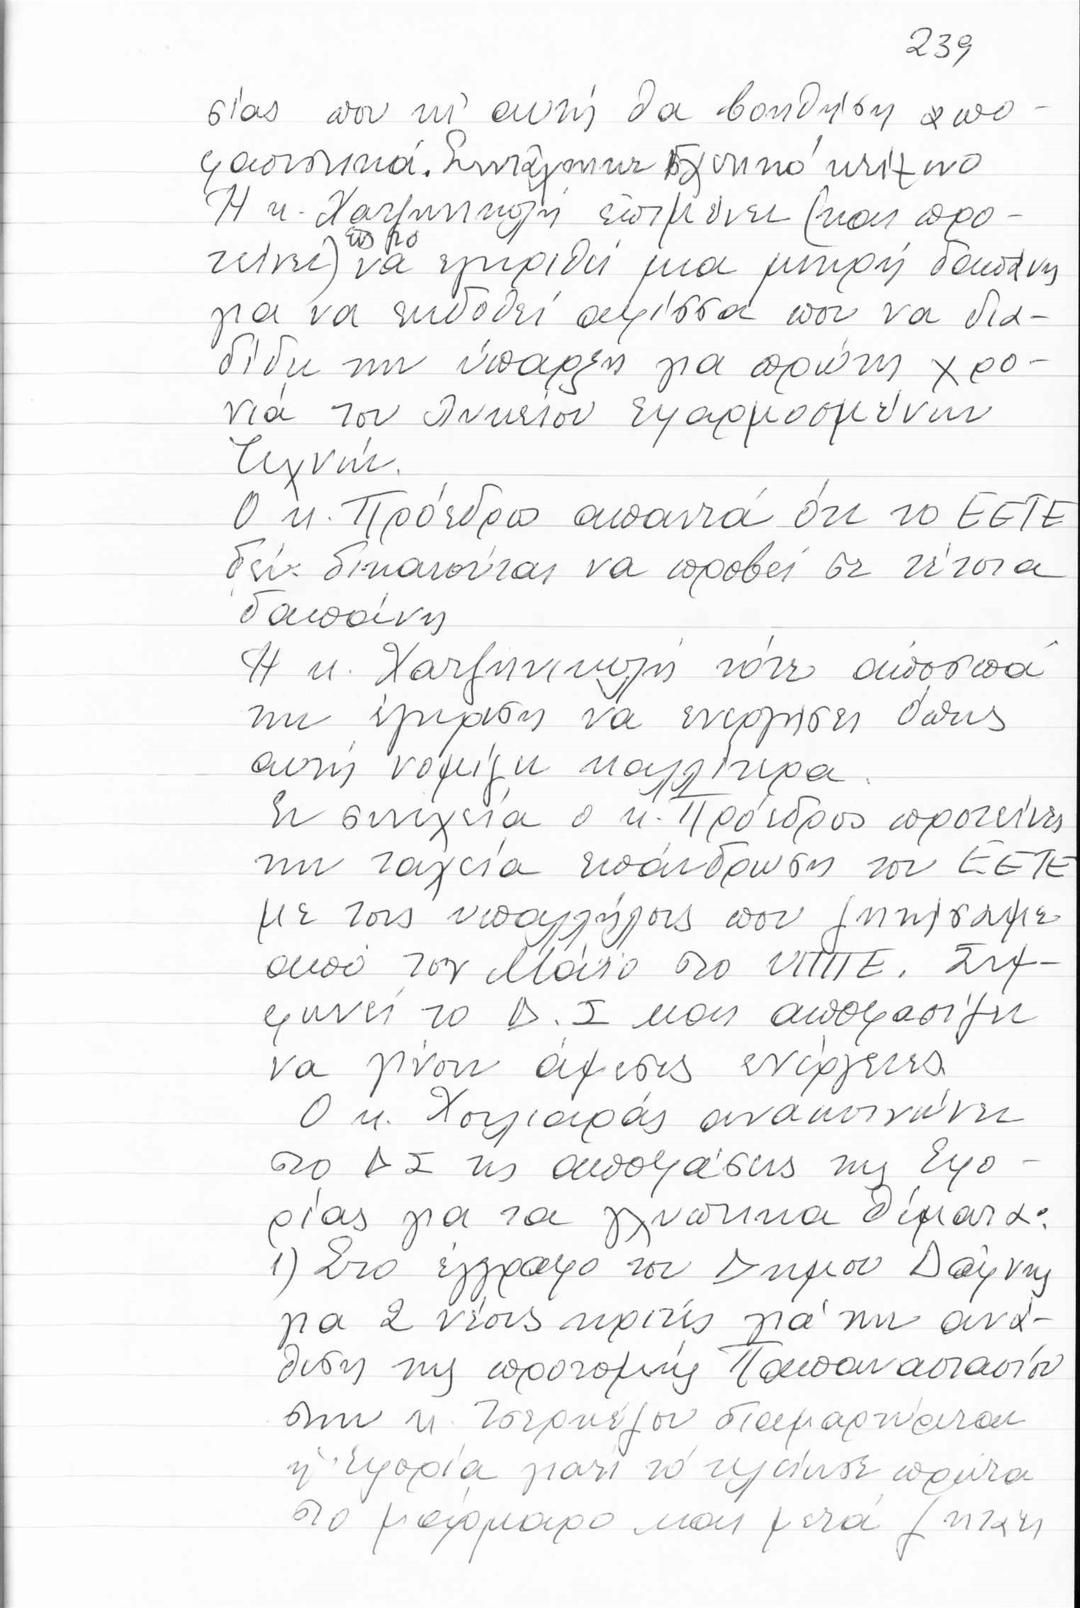 239
σίας που κι' αυτή θα βοηθήση απο-
φασιστικά.
Η κ. Χατζηνικολή επιμένει (και προ-
τείνει) να εγκριθεί μια μικρή δαπάνη
για να εκδοθεί αφίσσα που να δια-
δίδει την ύπαρξη για πρώτη χρο-
νιά του Λυκείου Εφαρμοσμένων
Τεχνών.
Ο κ. Πρόεδρος απαντά ότι το ΕΕΤΕ
δεν δικαιούται να προβεί σε τέτοια
δαπάνη
Η κ. Χατζηνικολή τότε αποσπά
την έγκριση να ενεργήσει όπως
αυτή νομίζει καλλίτερα.
Εν συνεχεία ο κ. Πρόεδρος προτείνει
την ταχεία επάνδρωση του ΕΕΤΕ
με τους υπαλλήλους που ζητήσαμε
από τον Μάϊο στο ΥΠΠΕ. Συμ-
φωνεί το Δ.Σ και αποφασίζει
να γίνουν άμεσες ενέργειες
Ο κ. Χουλιαράς ανακοινώνει
στο ΔΣ τις αποφάσεις της Εφο-
ρίας για τα γλυπτικα θέματα:
1) Στο έγγραφο του Δημου Δάφνης
για 2 νέους κριτές για την ανά-
θεση της προτομής Παπαναστασίου
στην κ. Τσερκέζου διαμαρτύρεται
η Εφορία γιατί τό τελείωσε πρώτα
στο μάρμαρο και μετά ζητάει